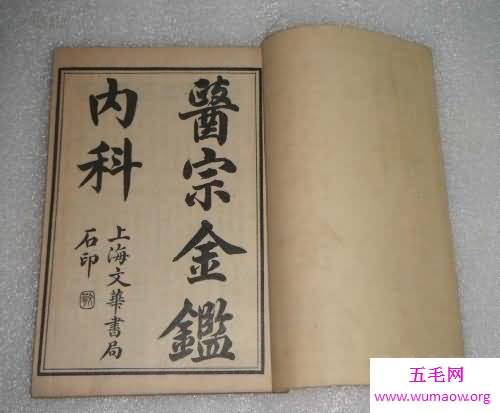 醫宗金鑑
内科
上海文華書局
石印
五毛网
www.wumaow.org